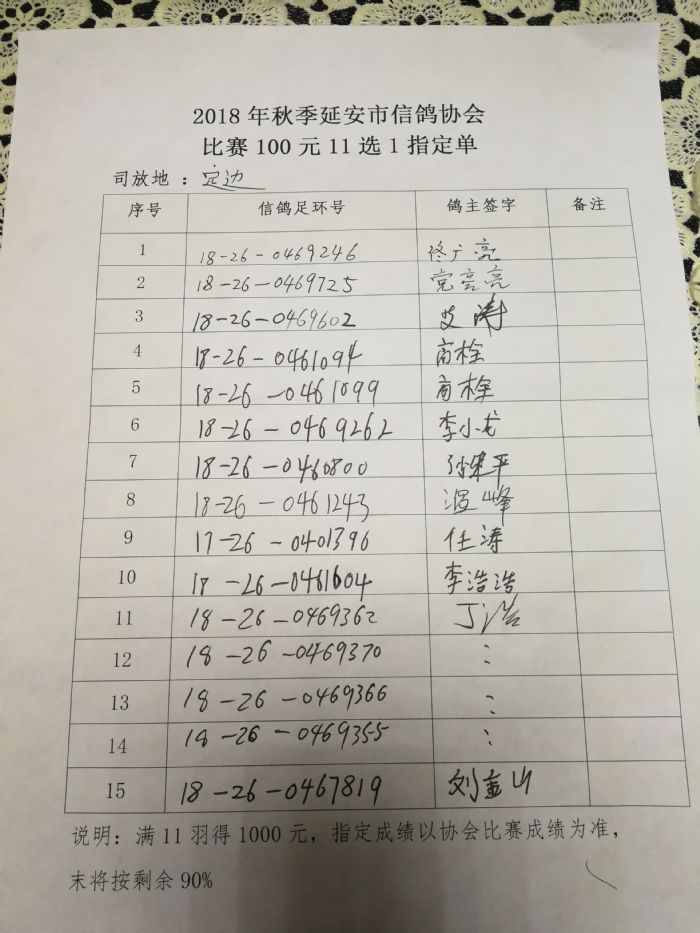 2018 年秋季延安市信鸽协会
比赛 100 元 11 选 1 指定单
司放地 ：定边
序号 信鸽足环号 鸽主签字 备注
1 18-26-0469246 佟广亮
2 18-26-0469725 党亮亮
3 18-26-0469602 艾涛
4 18-26-0461094 高栓
5 18-26-0461099 高栓
6 18-26-0469262 李小龙
7 18-26-0460800 孙建平
8 18-26-0461243 温峰
9 17-26-0401396 任涛
10 18-26-0461604 李浩浩
11 18-26-0469362 丁浩
12 18-26-0469370 :
13 18-26-0469366 :
14 18-26-0469355 :
15 18-26-0467819 刘金山
说明：满 11 羽得 1000 元，指定成绩以协会比赛成绩为准，
末将按剩余 90%